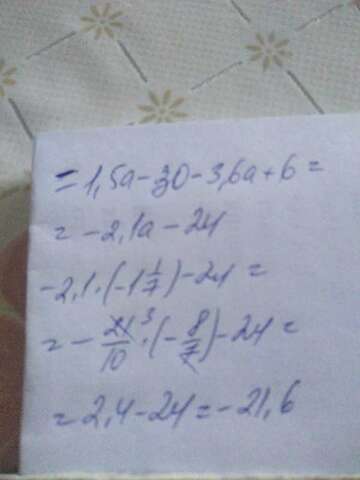 = 1,5a - 30 - 3,6a + 6 =
= -2,1a - 24
-2,1 · (-1 1/7) - 24 =
= - 21/10 ³ · (- 8/7) - 24 =
= 2,4 - 24 = -21,6